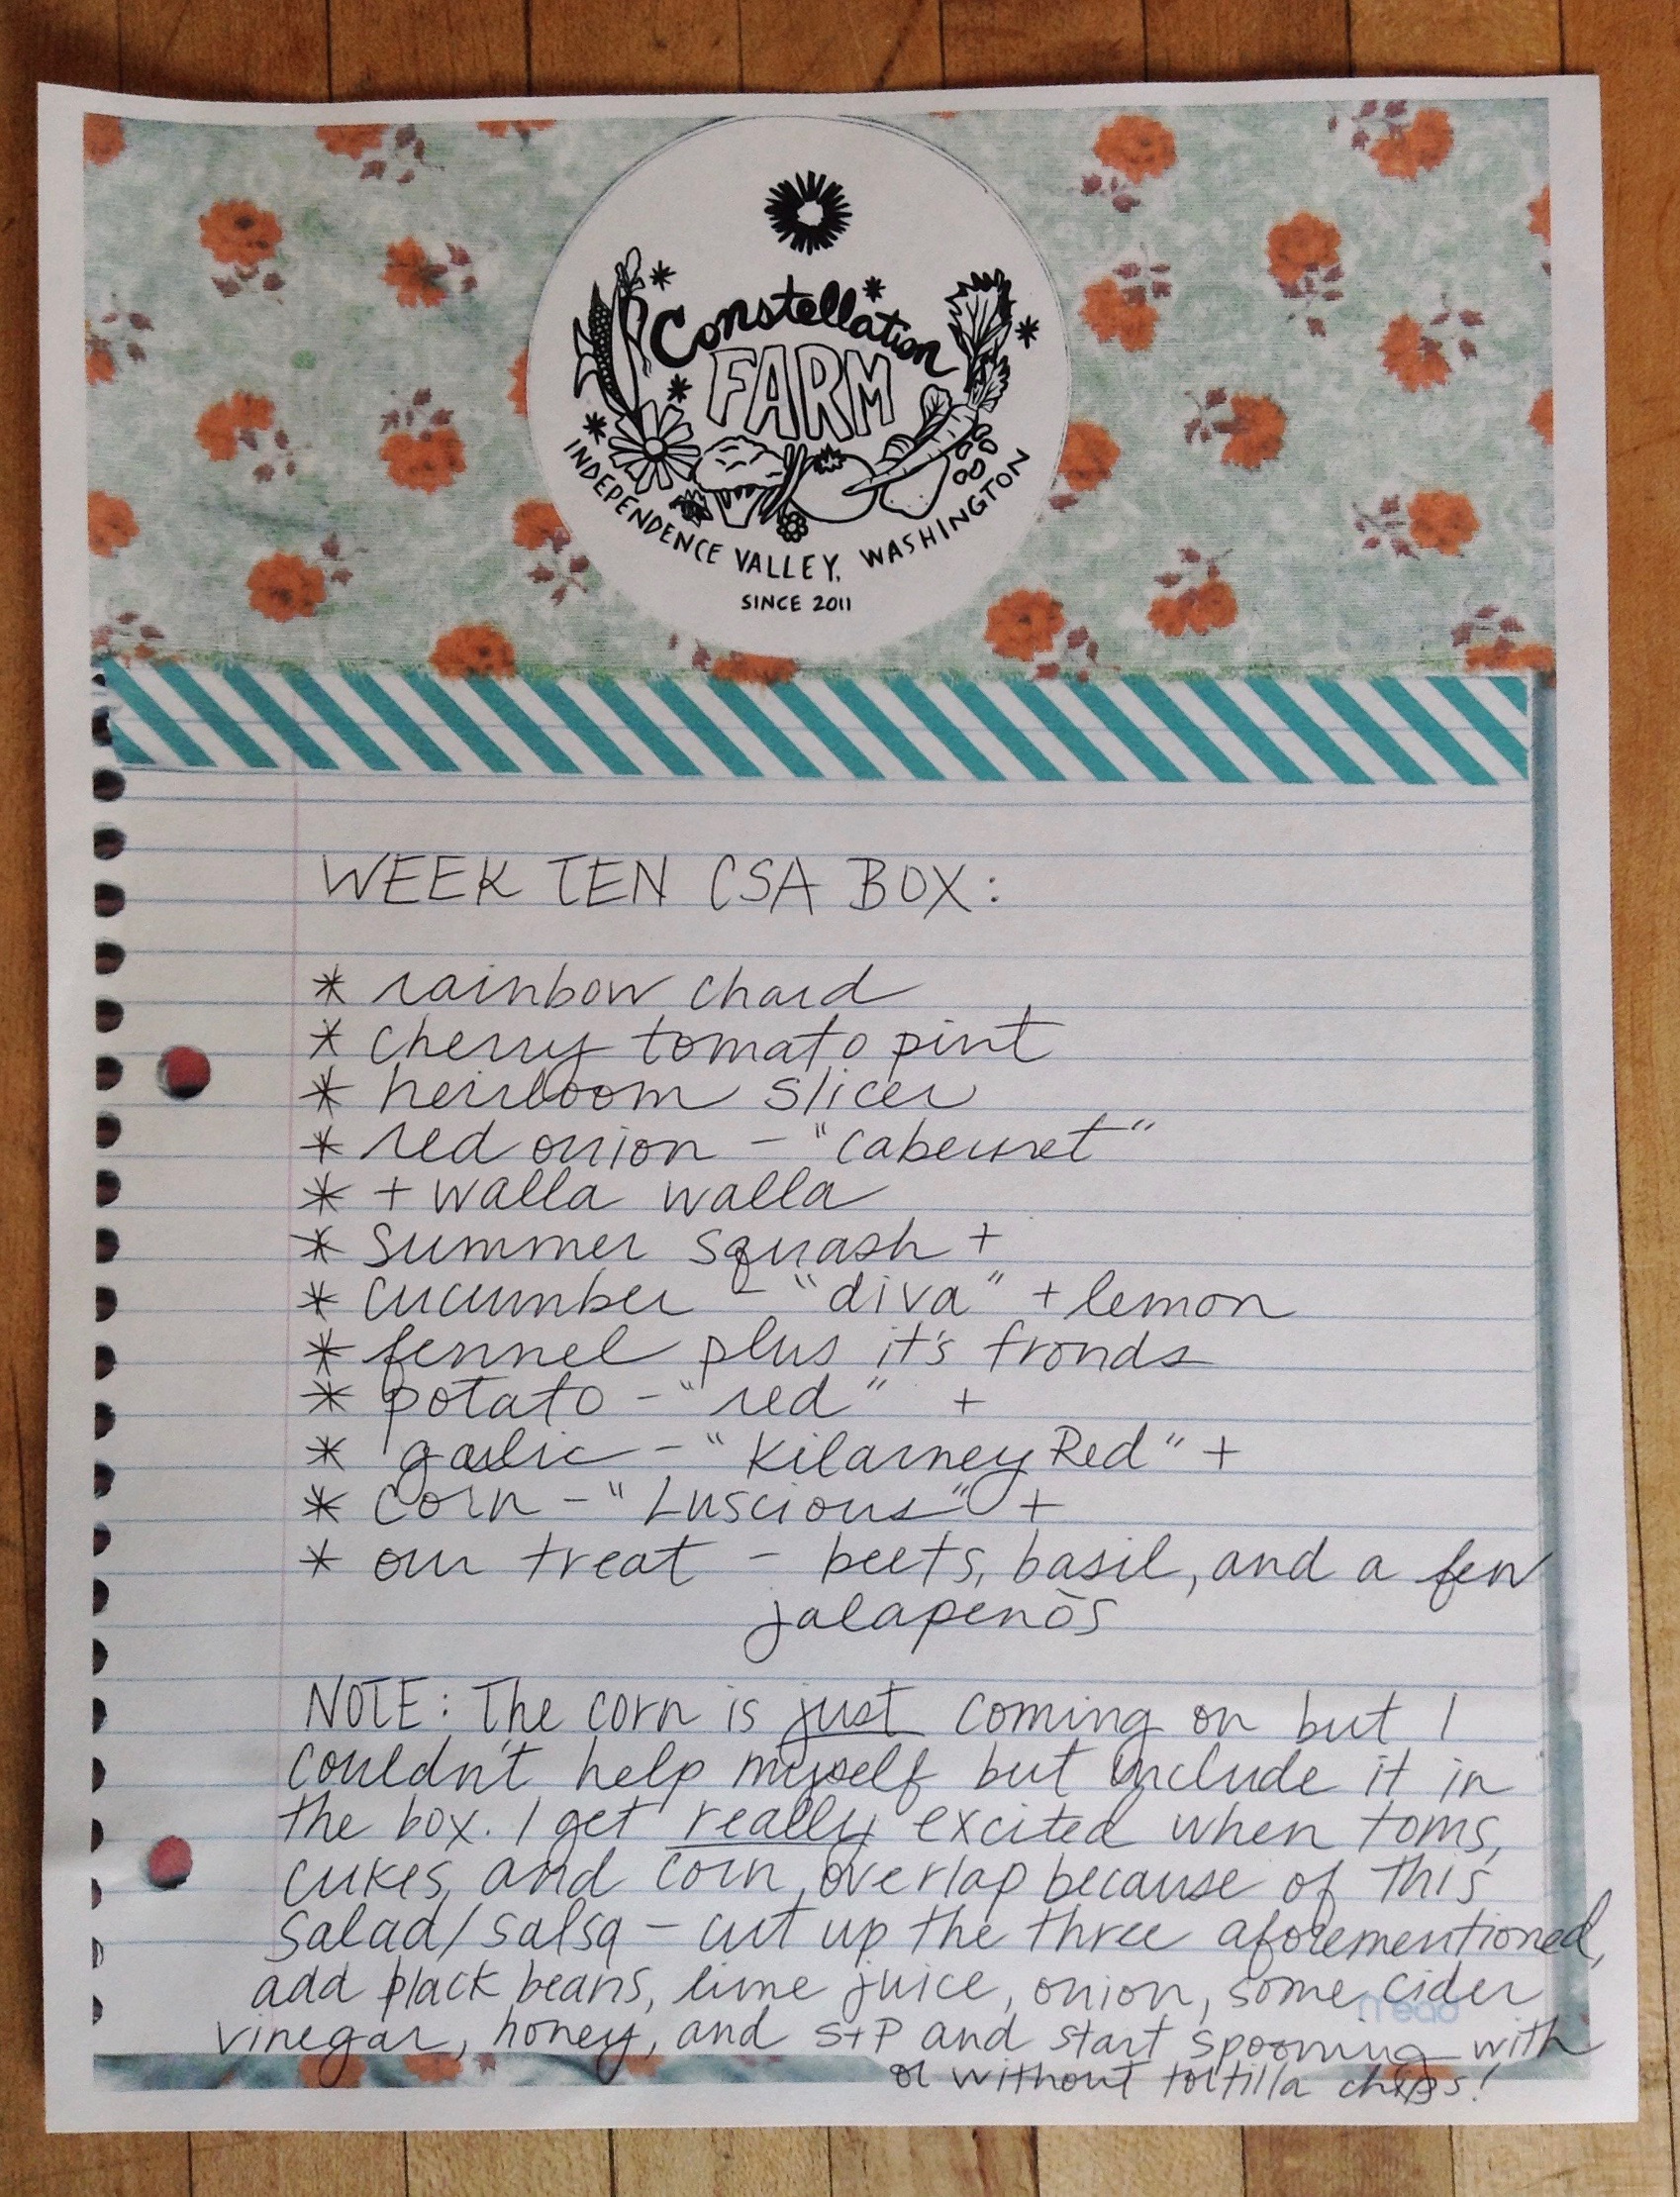 Constellation
FARM
INDEPENDENCE VALLEY, WASHINGTON
SINCE 2011
WEEK TEN CSA BOX:
* rainbow chard
* cherry tomato pint
* heirloom slicer
* red onion - "cabernet"
* + walla walla
* summer squash +
* cucumber - "diva" + lemon
* fennel plus it's fronds
* potato - "red" +
* garlic - "Kilarney Red" +
* corn - "Luscious" +
* our treat - beets, basil, and a few
jalapenõs
NOTE: The corn is just coming on but I
couldn't help myself but include it in
the box. I get really excited when toms,
cukes, and corn overlap because of this
salad/salsa - cut up the three aforementioned,
add black beans, lime juice, onion, some cider
mead
vinegar, honey, and S+P and start spooning with
or without tortilla chips!